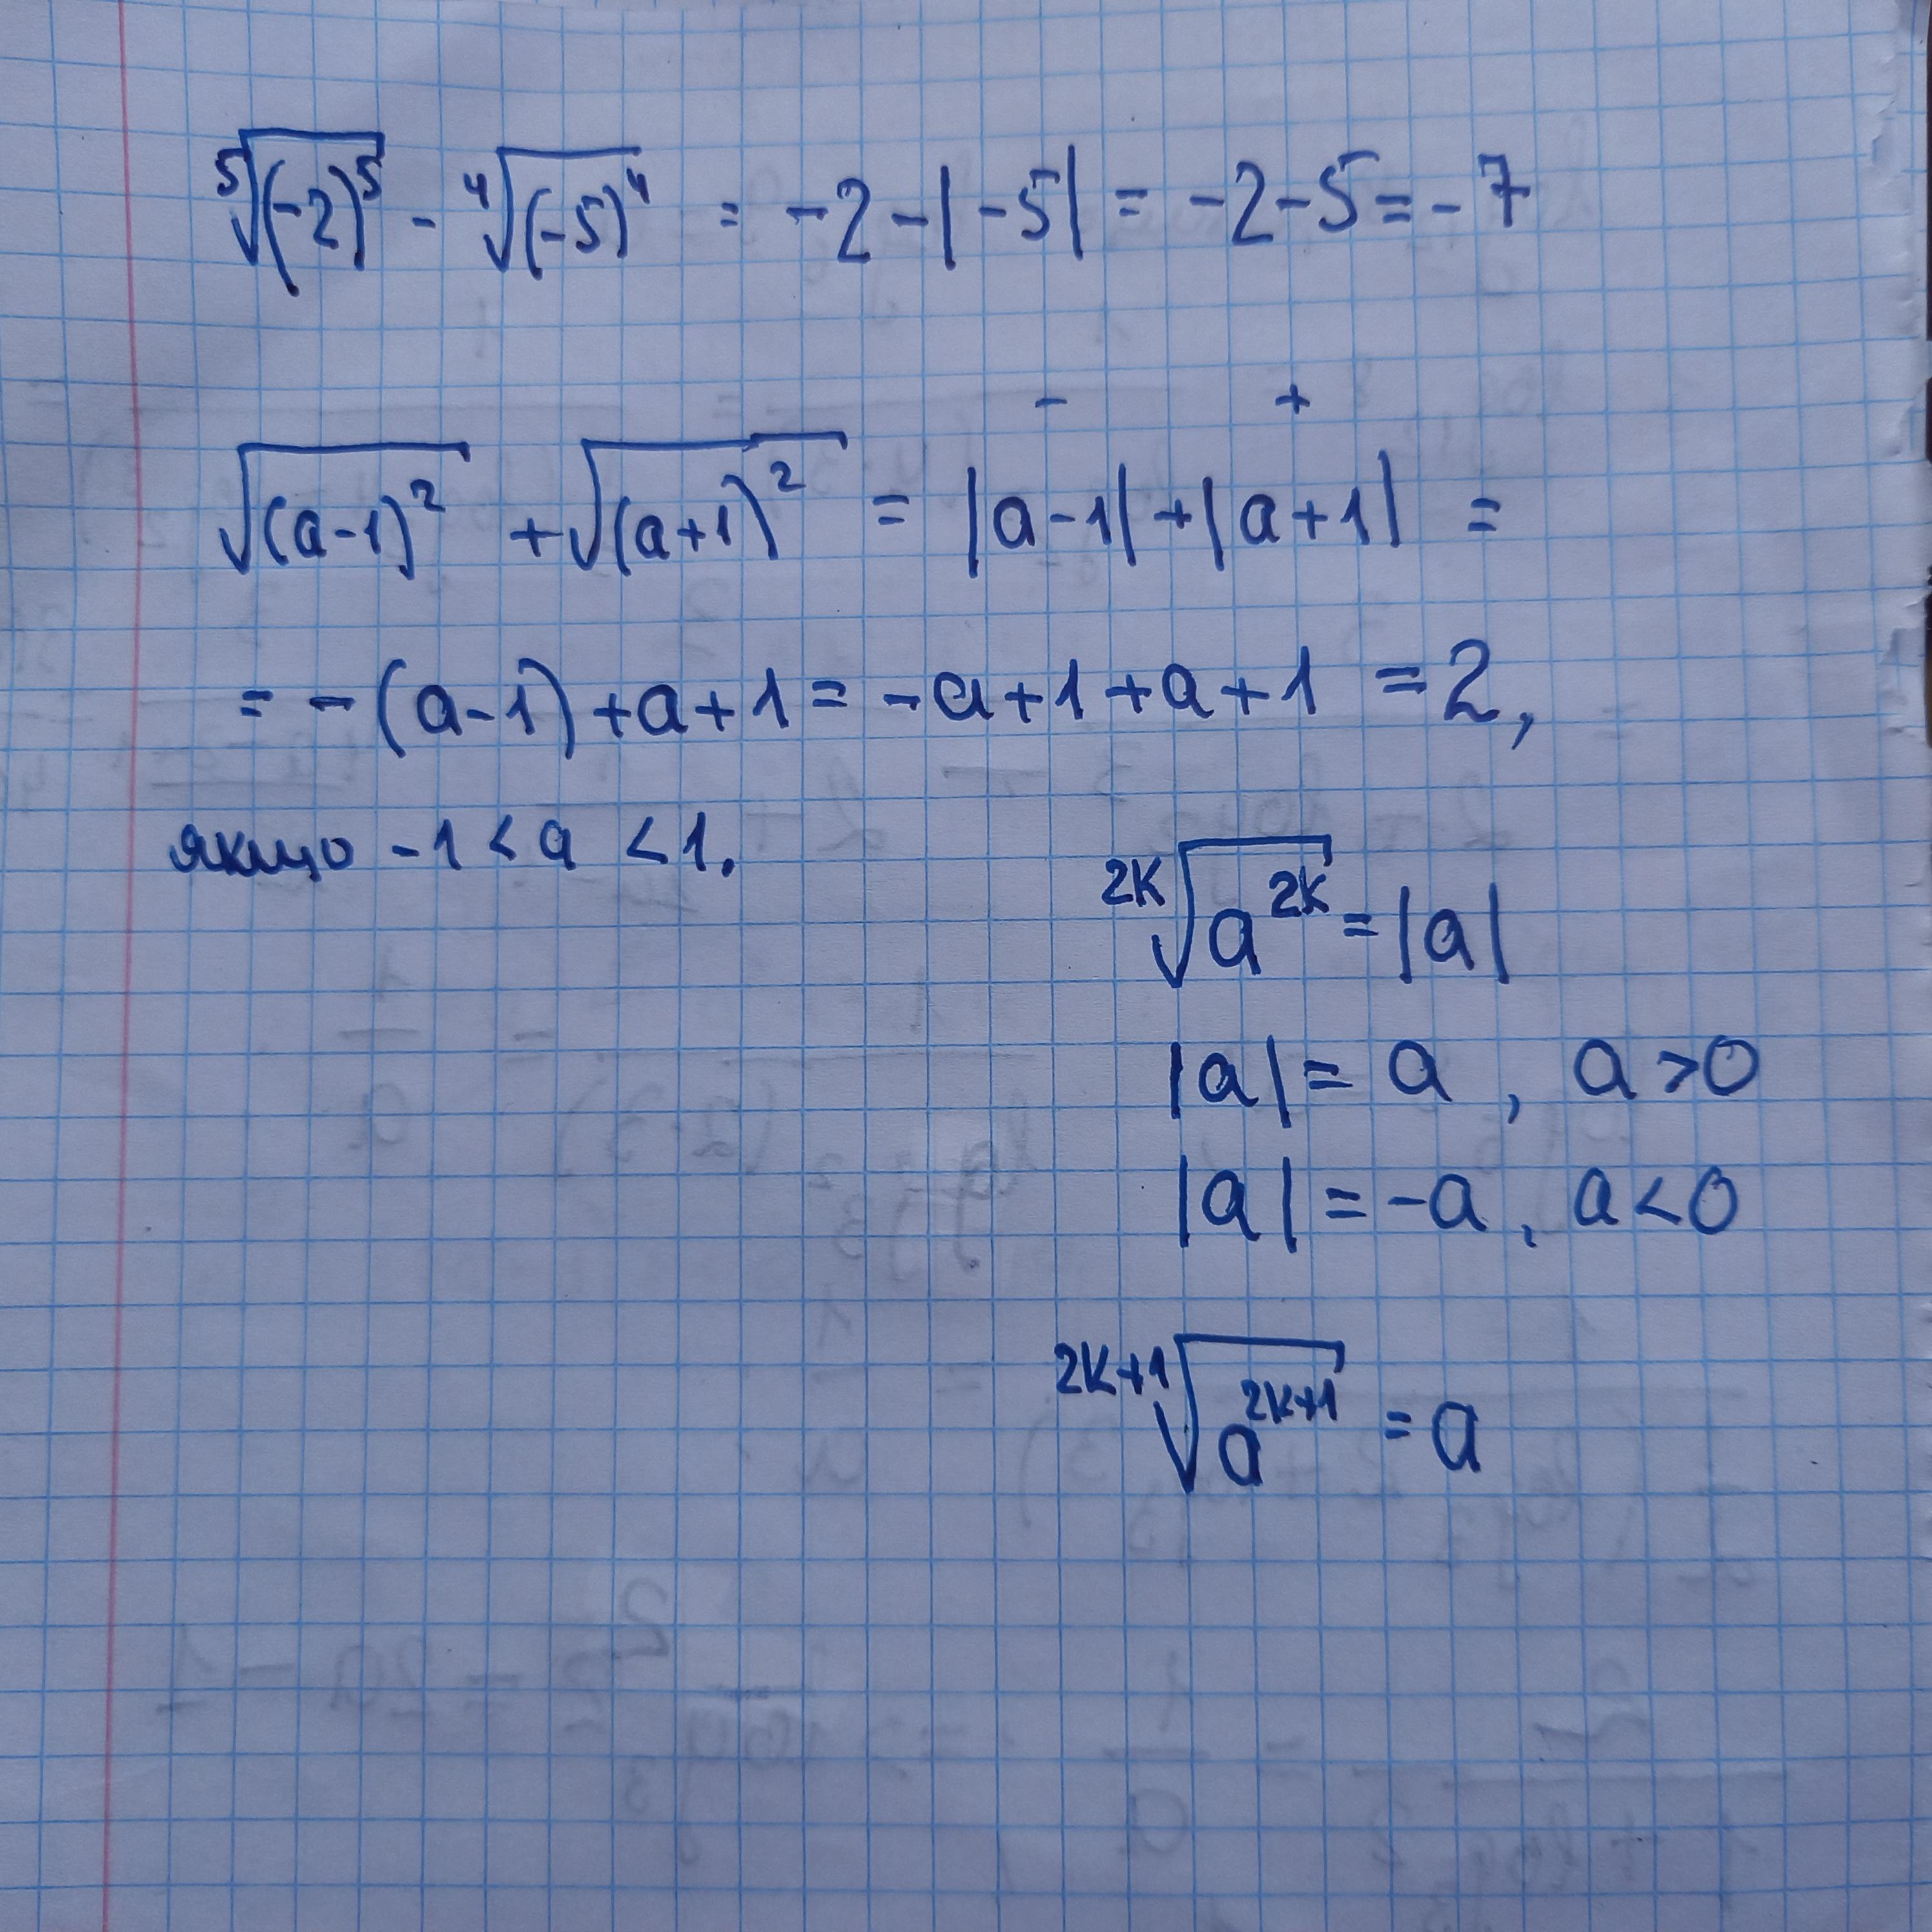 ⁵√(-2)⁵ - ⁴√(-5)⁴ = -2-|-5| = -2-5=-7
- +
√(a-1)² + √(a+1)² = |a-1|+|a+1| =
= -(a-1)+a+1= -a+1+a+1 =2,
якщо -1<a<1.
²ᴷ√a²ᴷ = |a|
|a|= a , a>0
|a|=-a, a<0
²ᴷ⁺¹√a²ᴷ⁺¹ = a